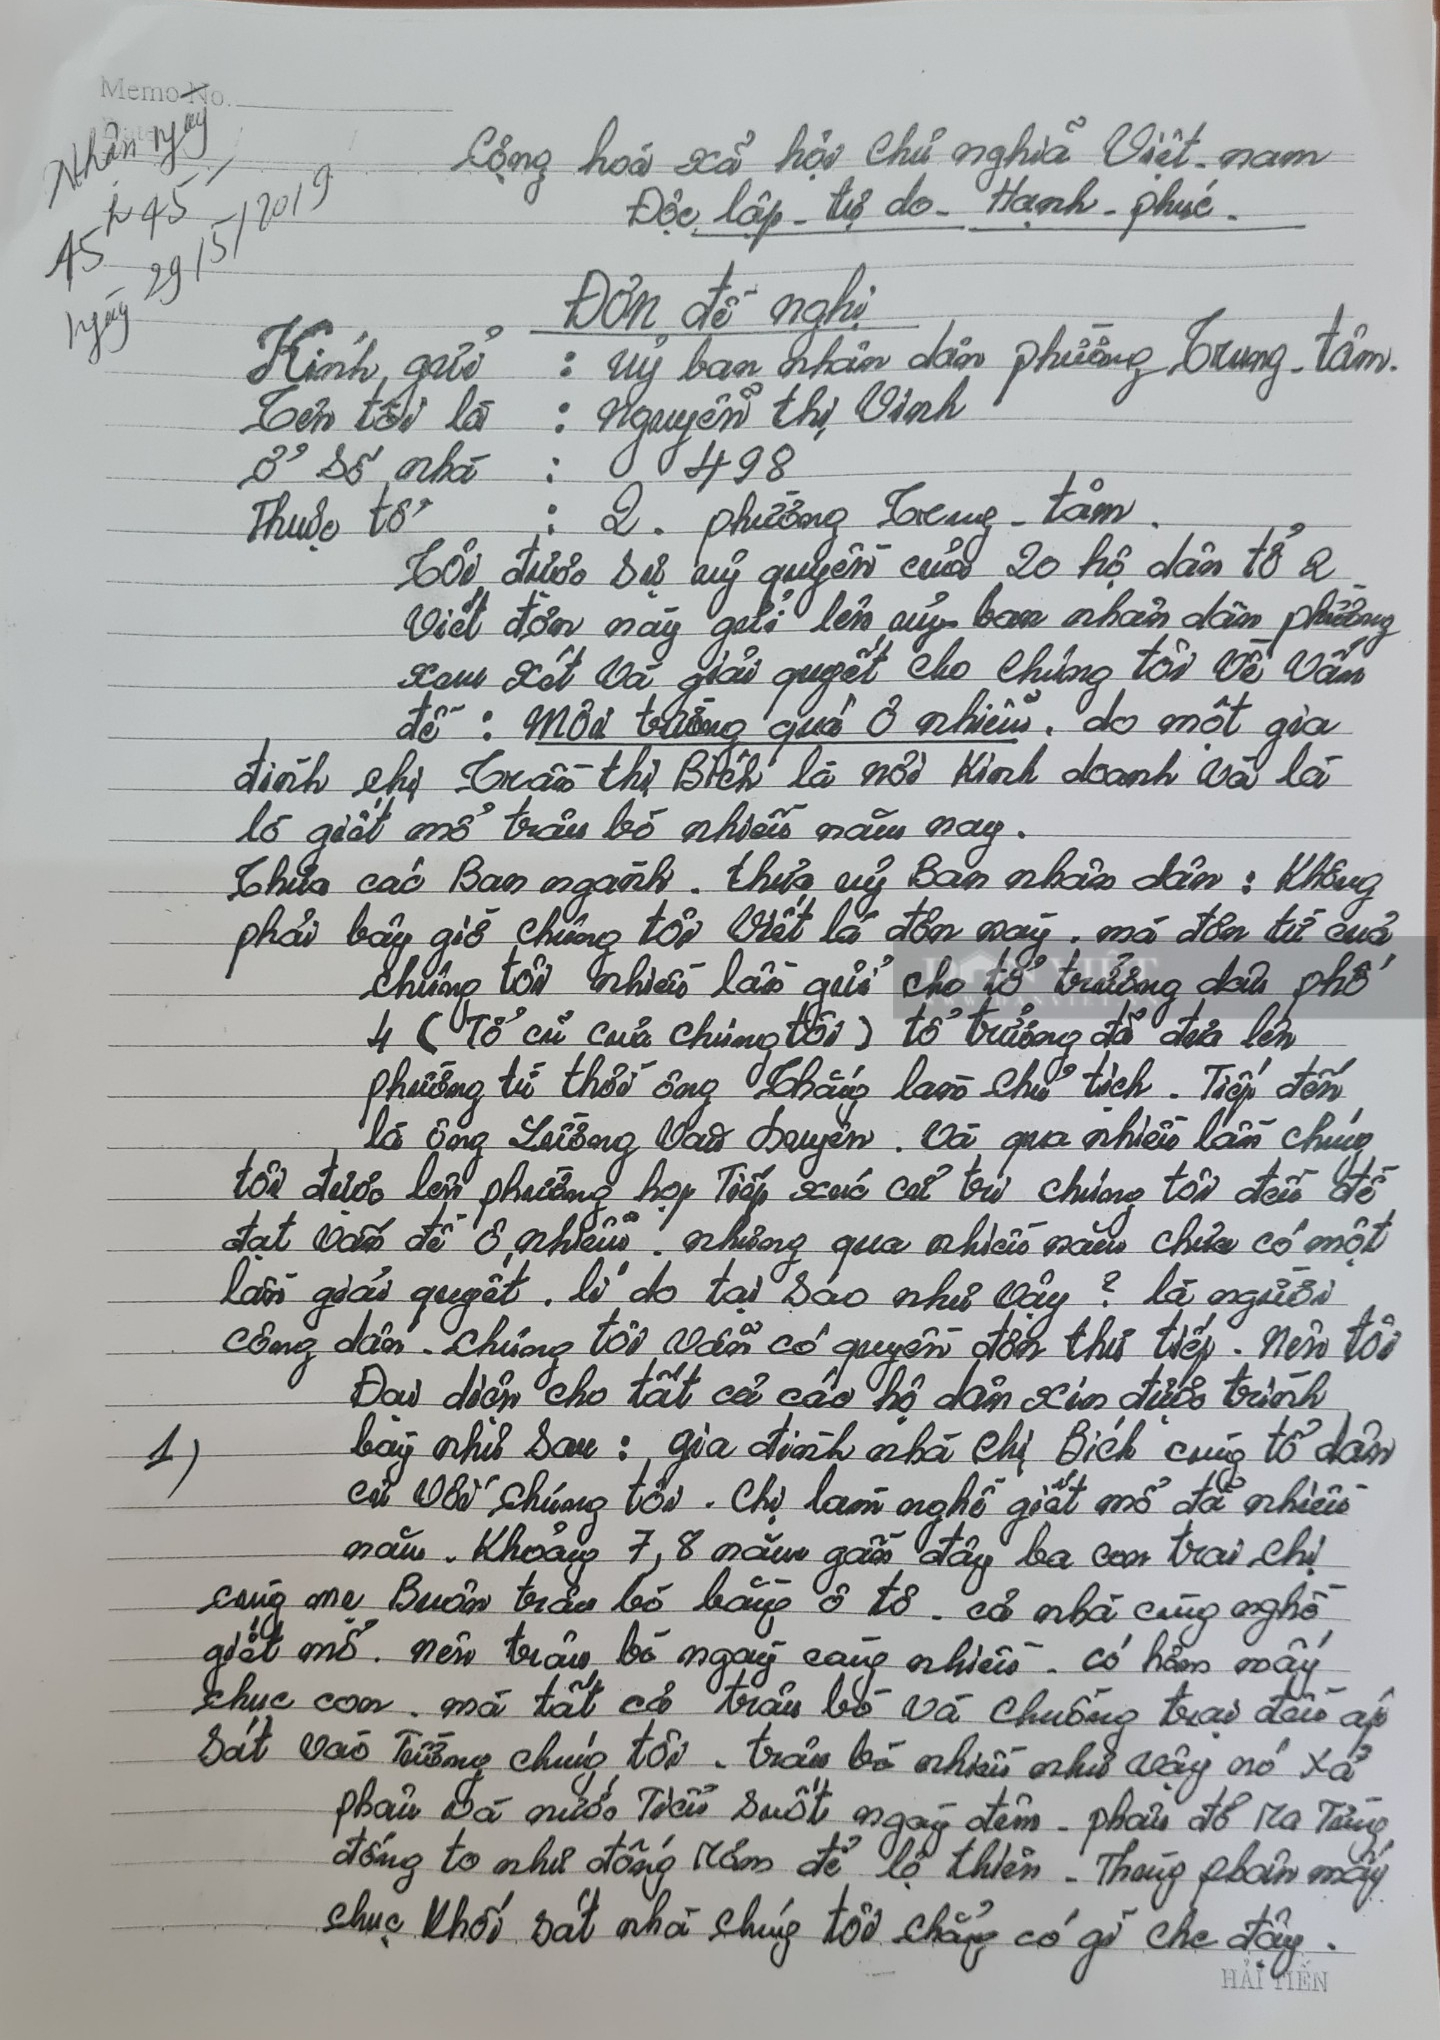 Memo No.
Nhận ngày
15h 45'
ngày 29/5/2019
Cộng hoà xã hội chủ nghĩa Việt-nam
Độc lập - tự do - Hạnh - phúc.
Đơn đề nghị
Kính gửi : uỷ ban nhân dân phường Trung-tâm.
Tên tôi là : Nguyễn thị Vinh
ở số nhà : 498
Thuộc tổ : 2. phường Trung-tâm.
Tôi được sự uỷ quyền của 20 hộ dân tổ 2
Viết đơn này gửi lên uỷ ban nhân dân phường
xem xét và giải quyết cho chúng tôi về vấn
đề : Môi trường quá ô nhiễm. do một gia
đình chị Trần thị Bích là nơi kinh doanh và là
lò giết mổ trâu bò nhiều năm nay.
Thưa các Ban ngành. thưa uỷ Ban nhân dân : Không
phải bây giờ chúng tôi viết lá đơn này. mà đơn từ của
chúng tôi nhiều lần gửi cho tổ trưởng dân phố
4 (Tổ cũ của chúng tôi) tổ trưởng đã đưa lên
phường từ thời ông Thắng làm chủ tịch. Tiếp đến
là ông Lường Văn Duyên. Và qua nhiều lần chúng
tôi được lên phường họp Tiếp xúc cử tri chúng tôi đều đề
đạt vấn đề ô nhiễm. nhưng qua nhiều năm chưa có một
lần giải quyết. lí do tại sao như vậy ? là người
công dân. chúng tôi vẫn có quyền đơn thư tiếp. Nên tôi
Đại diện cho tất cả các hộ dân xin được trình
1) bày như sau : gia đình nhà chị Bích cùng tổ dân
cư với chúng tôi. chị làm nghề giết mổ đã nhiều
năm. Khoảng 7,8 năm gần đây ba con trai chị
cùng mẹ Buôn trâu bò bằng ô tô. cả nhà cùng nghề
giết mổ. nên trâu bò ngày càng nhiều. có hôm mấy
chục con. mà tất cả trâu bò và chuồng trại đều áp
sát vào Tường chúng tôi. trâu bò nhiều như vậy nó xả
phân và nước Tiểu suốt ngày đêm. phân đổ ra Từng
đống to như đống rơm để lộ thiên. Thùng phân mấy
chục khối sát nhà chúng tôi chẳng có gì che đậy.
DÂN VIỆT
WWW.DANVIET.VN
HẢI TIẾN